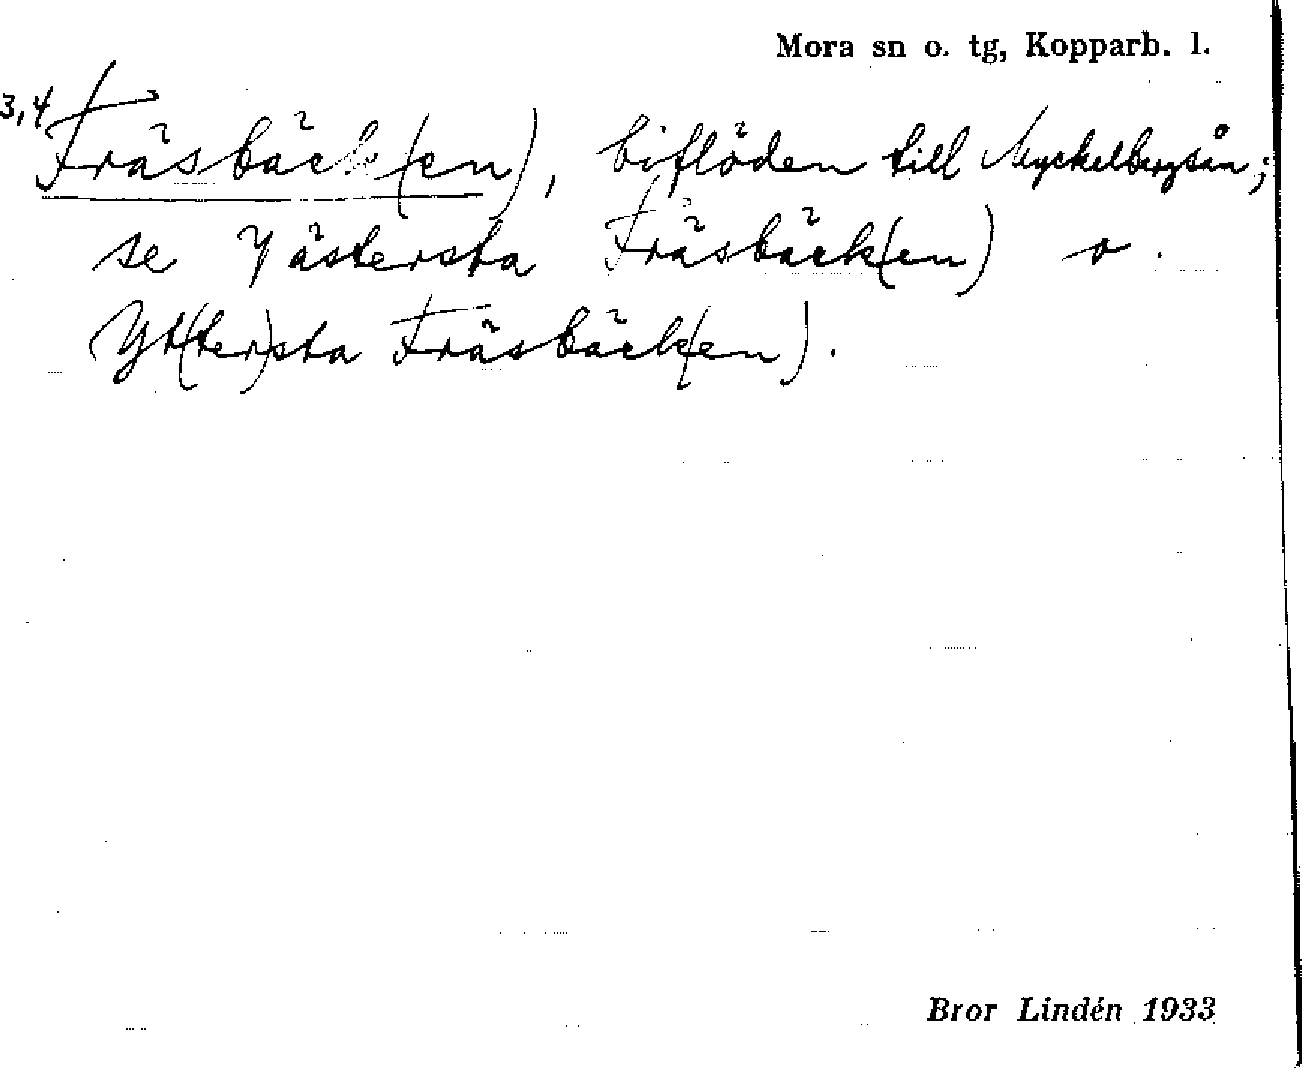 Mora sn o. tg, Kopparb. l.
3,4 Fräsbäck(en), biflöden till Myckelbergsån;
se Västersta Fräsbäck(en) o.
Yt(ter)sta Fräsbäck(en).
Bror Lindén 1933